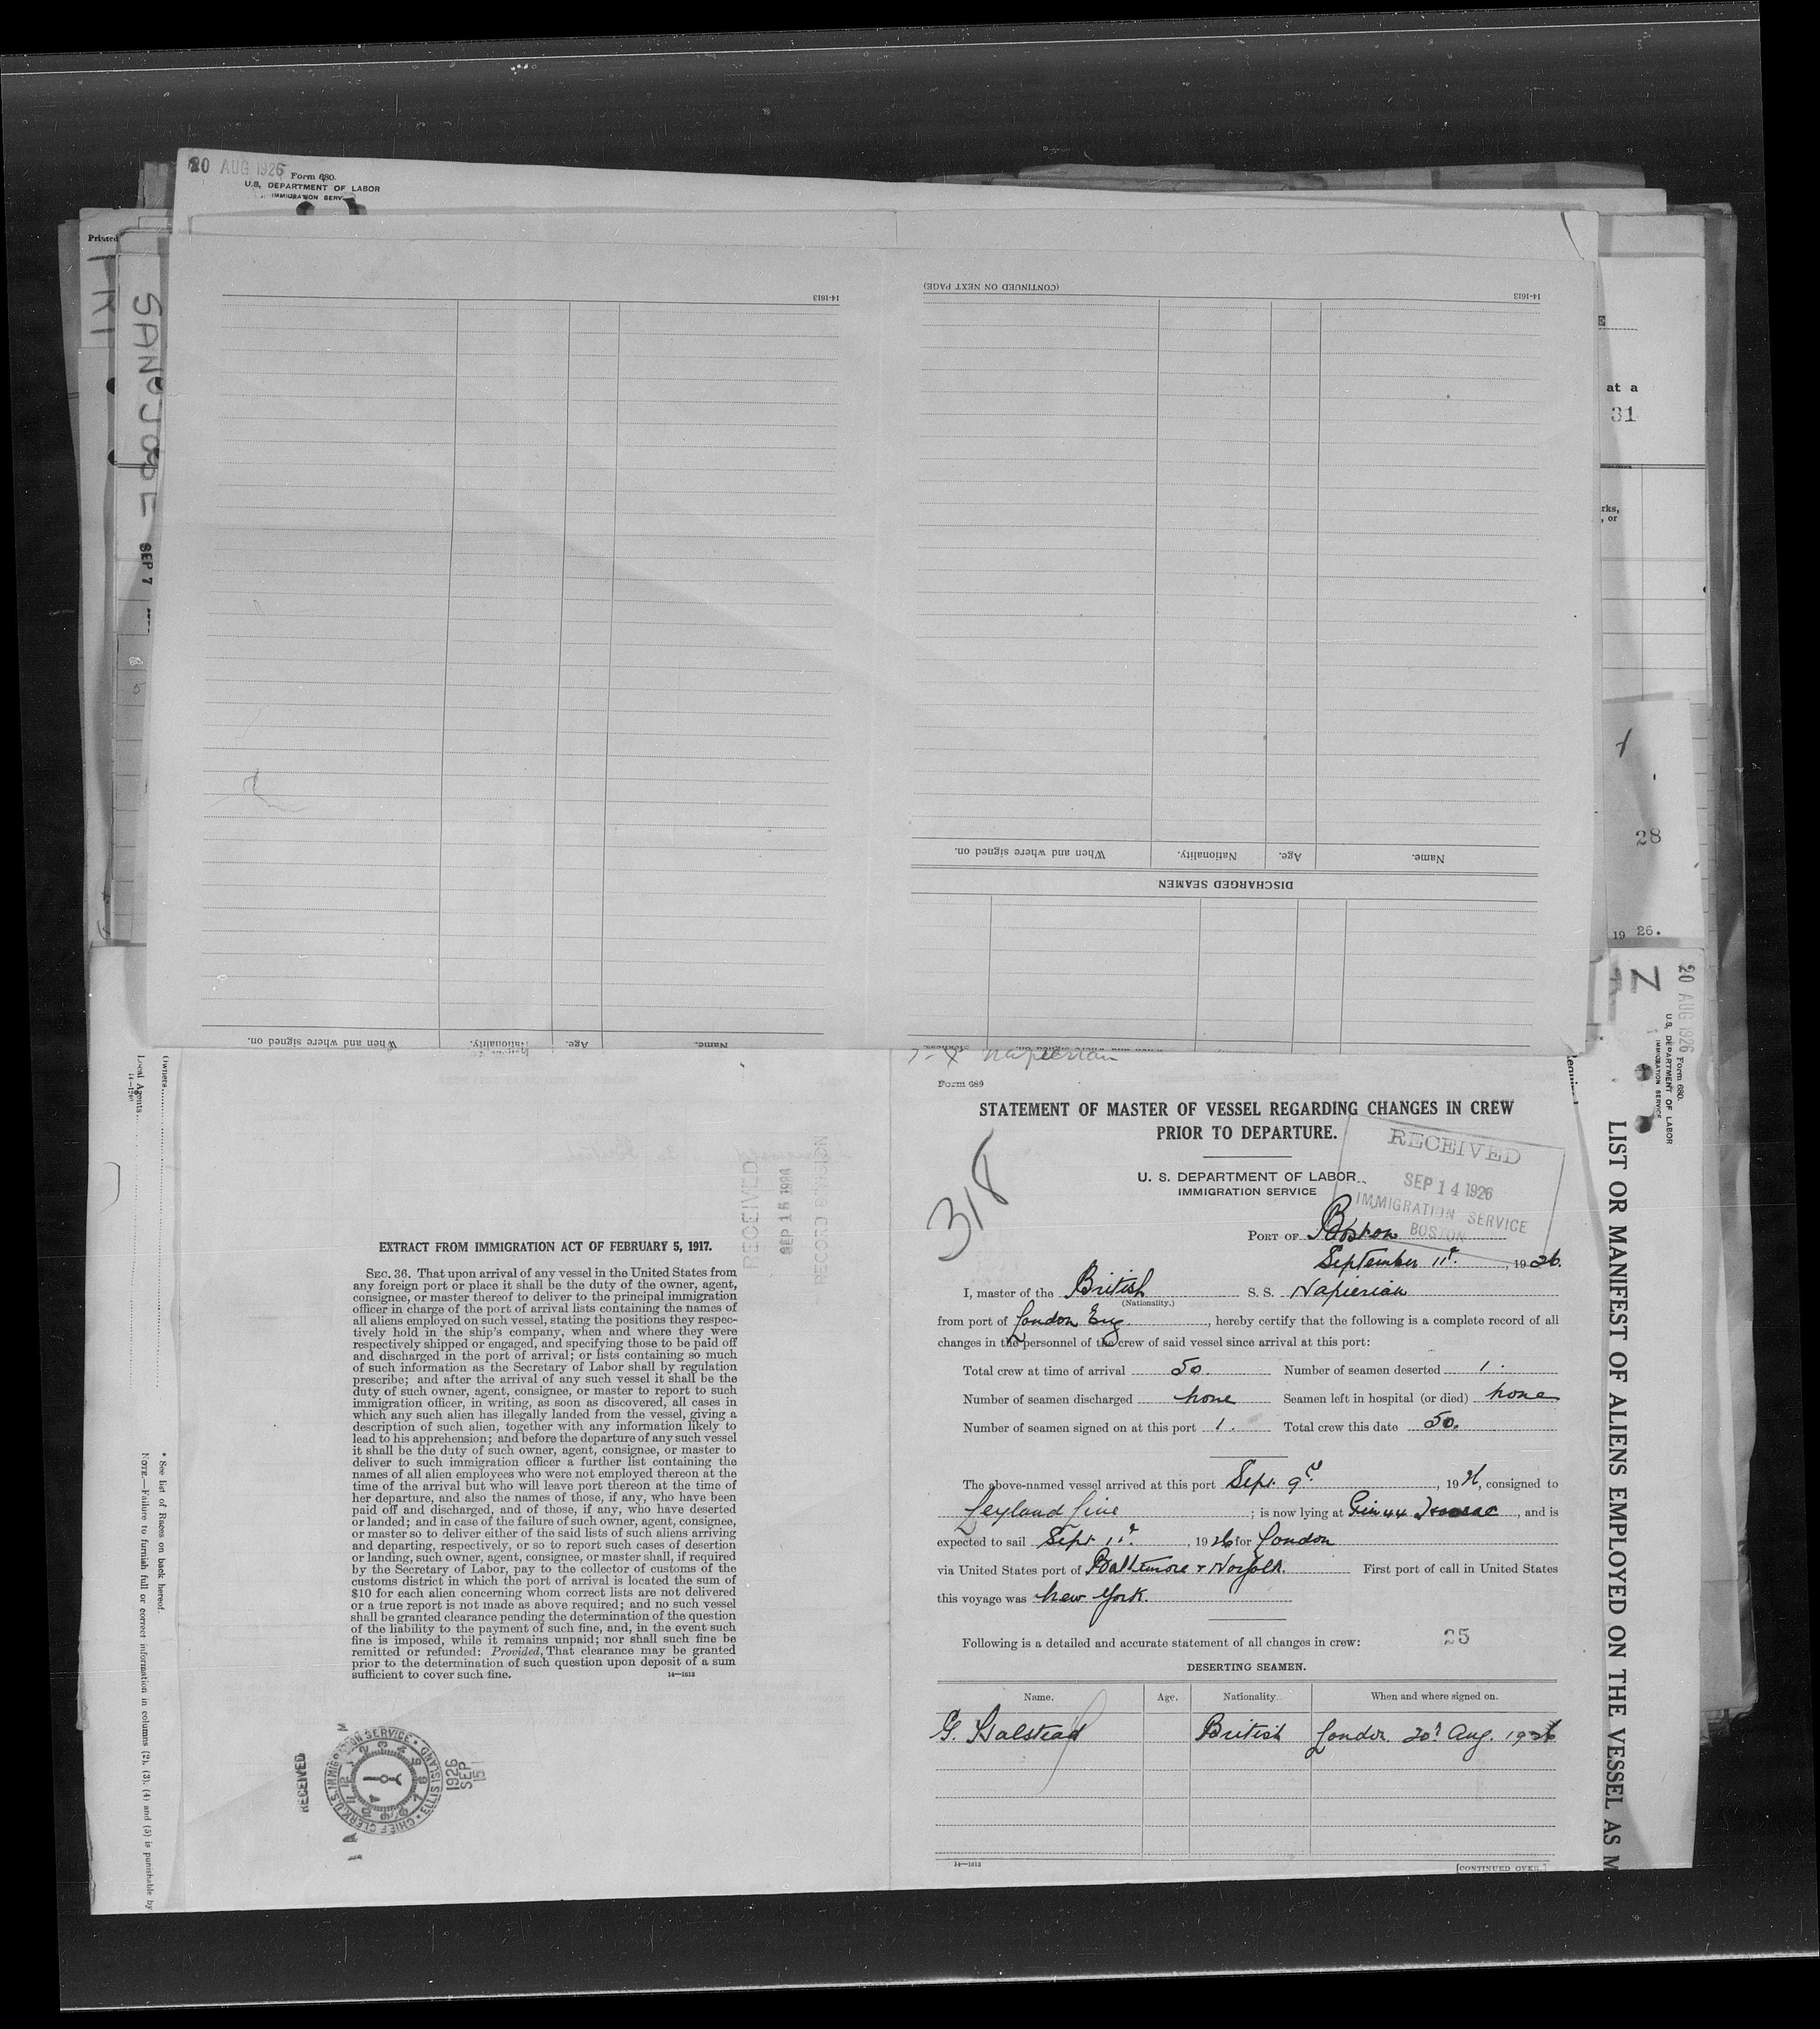 20 AUG 1926
Form 680.
U.S. DEPARTMENT OF LABOR
IMMIGRATION SERV
Printed
SAN JOSE
SEP 7
14-1613
(CONTINUED ON NEXT PAGE)
14-1613
When and where signed on.
Nationality.
Age.
Name.
DISCHARGED SEAMEN
When and where signed on.
Nationality.
Age.
Name.
at a
31
rks,
, or
28
19 26.
Owners
Local Agents
14-1240
* See list of Races on back hereof.
NOTE.—Failure to furnish full or correct information in columns (2), (3), (4) and (5) is punishable by
RECEIVED
SEP 15
RECORD DIVISION
EXTRACT FROM IMMIGRATION ACT OF FEBRUARY 5, 1917.
SEC. 36. That upon arrival of any vessel in the United States from
any foreign port or place it shall be the duty of the owner, agent,
consignee, or master thereof to deliver to the principal immigration
officer in charge of the port of arrival lists containing the names of
all aliens employed on such vessel, stating the positions they respec-
tively hold in the ship's company, when and where they were
respectively shipped or engaged, and specifying those to be paid off
and discharged in the port of arrival; or lists containing so much
of such information as the Secretary of Labor shall by regulation
prescribe; and after the arrival of any such vessel it shall be the
duty of such owner, agent, consignee, or master to report to such
immigration officer, in writing, as soon as discovered, all cases in
which any such alien has illegally landed from the vessel, giving a
description of such alien, together with any information likely to
lead to his apprehension; and before the departure of any such vessel
it shall be the duty of such owner, agent, consignee, or master to
deliver to such immigration officer a further list containing the
names of all alien employees who were not employed thereon at the
time of the arrival but who will leave port thereon at the time of
her departure, and also the names of those, if any, who have been
paid off and discharged, and of those, if any, who have deserted
or landed; and in case of the failure of such owner, agent, consignee,
or master so to deliver either of the said lists of such aliens arriving
and departing, respectively, or so to report such cases of desertion
or landing, such owner, agent, consignee, or master shall, if required
by the Secretary of Labor, pay to the collector of customs of the
customs district in which the port of arrival is located the sum of
$10 for each alien concerning whom correct lists are not delivered
or a true report is not made as above required; and no such vessel
shall be granted clearance pending the determination of the question
of the liability to the payment of such fine, and, in the event such
fine is imposed, while it remains unpaid; nor shall such fine be
remitted or refunded: Provided, That clearance may be granted
prior to the determination of such question upon deposit of a sum
sufficient to cover such fine.
14—1613
RECEIVED
CHIEF CLERK U.S. IMMIGRATION SERVICE • ELLIS ISLAND •
1926
SEP
15
Napierian
Form 689
STATEMENT OF MASTER OF VESSEL REGARDING CHANGES IN CREW
PRIOR TO DEPARTURE.
318
U. S. DEPARTMENT OF LABOR
IMMIGRATION SERVICE
RECEIVED
SEP 14 1926
IMMIGRATION SERVICE
BOSTON
PORT OF Boston
September 11th, 1926.
I, master of the British S. S. Napierian
(Nationality.)
from port of London Eng, hereby certify that the following is a complete record of all
changes in the personnel of the crew of said vessel since arrival at this port:
Total crew at time of arrival 50. Number of seamen deserted 1.
Number of seamen discharged none Seamen left in hospital (or died) none
Number of seamen signed on at this port 1. Total crew this date 50.
The above-named vessel arrived at this port Sept. 9th, 1926, consigned to
Leyland Line; is now lying at Pier 44, and is
expected to sail Sept 11th, 1926 for London
via United States port of Baltimore & Norfolk. First port of call in United States
this voyage was New York.
Following is a detailed and accurate statement of all changes in crew:
25
DESERTING SEAMEN.
Name. Age. Nationality When and where signed on.
G. Halstead British London 20th Aug. 1926
14—1613
[CONTINUED OVER.]
20 AUG 1926
Form 680.
U.S. DEPARTMENT OF LABOR
IMMIGRATION SERVICE
LIST OR MANIFEST OF ALIENS EMPLOYED ON THE VESSEL AS M